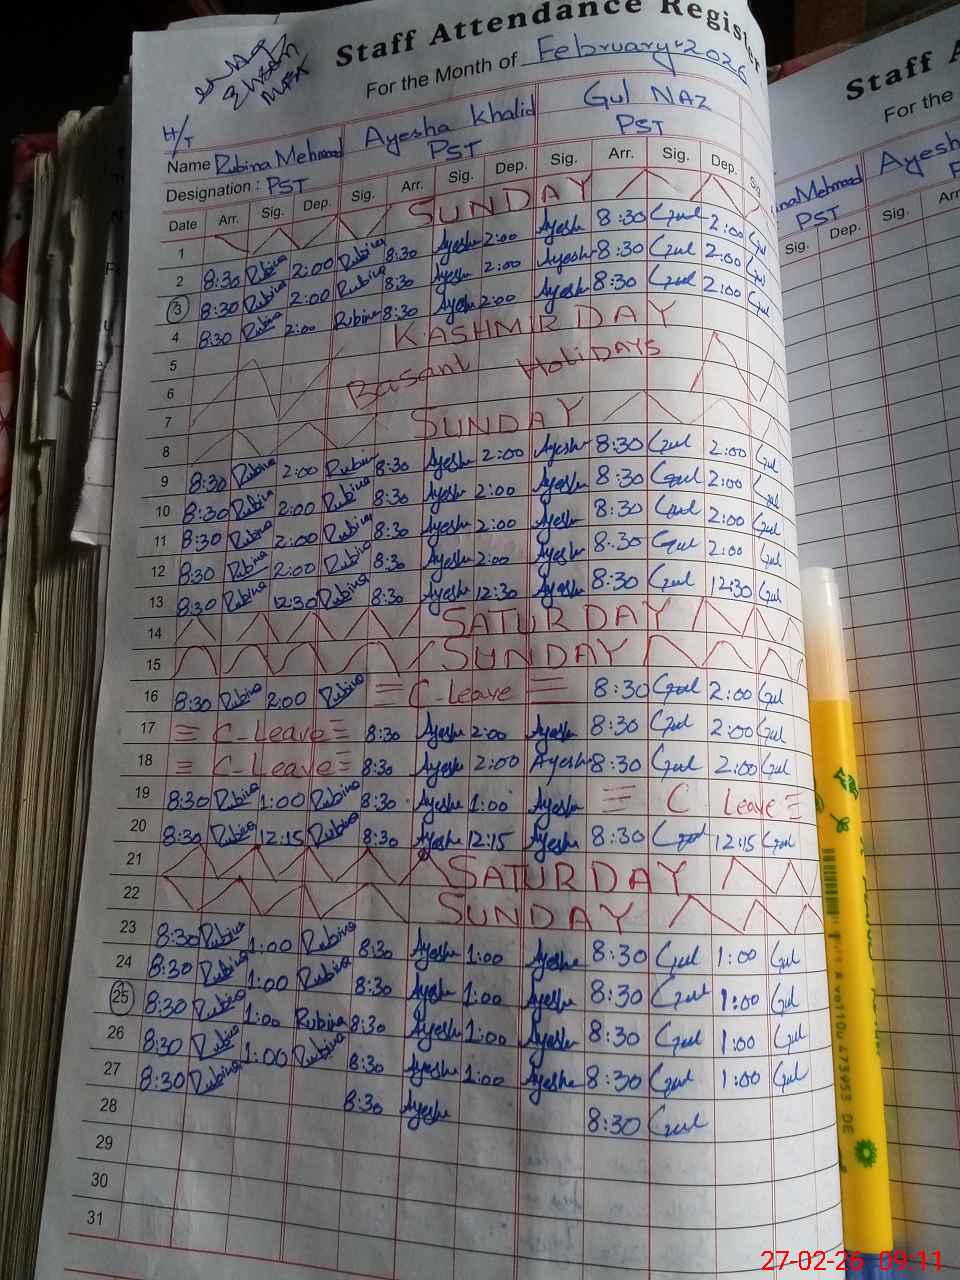 Staff Attendance Register
For the Month of February-2026
H/T
Name Rubina Mehmood Ayesha Khalid Gul NAZ
Designation : PST PST PST
Date Arr. Sig. Dep. Sig. Arr. Sig. Dep. Sig. Arr. Sig. Dep. Sig.
1 SUNDAY
2 8:30 Rubina 2:00 Rubina 8:30 Ayesha 2:00 Ayesha 8:30 Gul 2:00 Gul
3 8:30 Rubina 2:00 Rubina 8:30 Ayesha 2:00 Ayesha 8:30 Gul 2:00 Gul
4 8:30 Rubina 2:00 Rubina 8:30 Ayesha 2:00 Ayesha 8:30 Gul 2:00 Gul
5 KASHMIR DAY
6 Basant HoliDAYS
7
8 SUNDAY
9 8:30 Rubina 2:00 Rubina 8:30 Ayesha 2:00 Ayesha 8:30 Gul 2:00 Gul
10 8:30 Rubina 2:00 Rubina 8:30 Ayesha 2:00 Ayesha 8:30 Gul 2:00 Gul
11 8:30 Rubina 2:00 Rubina 8:30 Ayesha 2:00 Ayesha 8:30 Gul 2:00 Gul
12 8:30 Rubina 2:00 Rubina 8:30 Ayesha 2:00 Ayesha 8:30 Gul 2:00 Gul
13 8:30 Rubina 12:30 Rubina 8:30 Ayesha 12:30 Ayesha 8:30 Gul 12:30 Gul
14 SATURDAY
15 SUNDAY
16 8:30 Rubina 2:00 Rubina C-Leave 8:30 Gul 2:00 Gul
17 C-Leave 8:30 Ayesha 2:00 Ayesha 8:30 Gul 2:00 Gul
18 C-Leave 8:30 Ayesha 2:00 Ayesha 8:30 Gul 2:00 Gul
19 8:30 Rubina 1:00 Rubina 8:30 Ayesha 1:00 Ayesha C Leave
20 8:30 Rubina 12:15 Rubina 8:30 Ayesha 12:15 Ayesha 8:30 Gul 12:15 Gul
21 SATURDAY
22 SUNDAY
23 8:30 Rubina 1:00 Rubina 8:30 Ayesha 1:00 Ayesha 8:30 Gul 1:00 Gul
24 8:30 Rubina 1:00 Rubina 8:30 Ayesha 1:00 Ayesha 8:30 Gul 1:00 Gul
25 8:30 Rubina 1:00 Rubina 8:30 Ayesha 1:00 Ayesha 8:30 Gul 1:00 Gul
26 8:30 Rubina 1:00 Rubina 8:30 Ayesha 1:00 Ayesha 8:30 Gul 1:00 Gul
27 8:30 Rubina 8:30 Ayesha 8:30 Gul
28
29
30
31
Staff A
For the
Mehmood Ayesh
PST
Sig. Dep. Sig. Arr
27-02-26 09:11